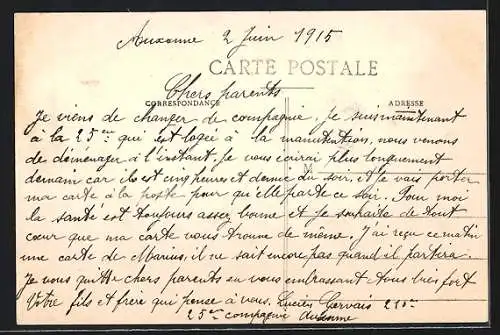 Auxonne 2 Juin 1915
CARTE POSTALE
Chers parents
CORRESPONDANCE
ADRESSE
Je viens de changer de compagnie, je suis maintenant
à la 25me qui est logée à la manutention, nous venons
de déménager à l'instant, je vous écrirai plus longuement
demain car il est cinq heures et demie du soir, et je vais porter
ma carte à la poste pour qu'elle parte ce soir. Pour moi
la santé est toujours assez bonne et je souhaite de tout
cœur que ma carte vous trouve de même. J'ai reçu ce matin
une carte de Marius, il ne sait encore pas quand il partira.
Je vous quitte chers parents en vous embrassant tous bien fort
Votre fils et frère qui pense à vous. Lucien Gervais 210me
25me compagnie Auxonne